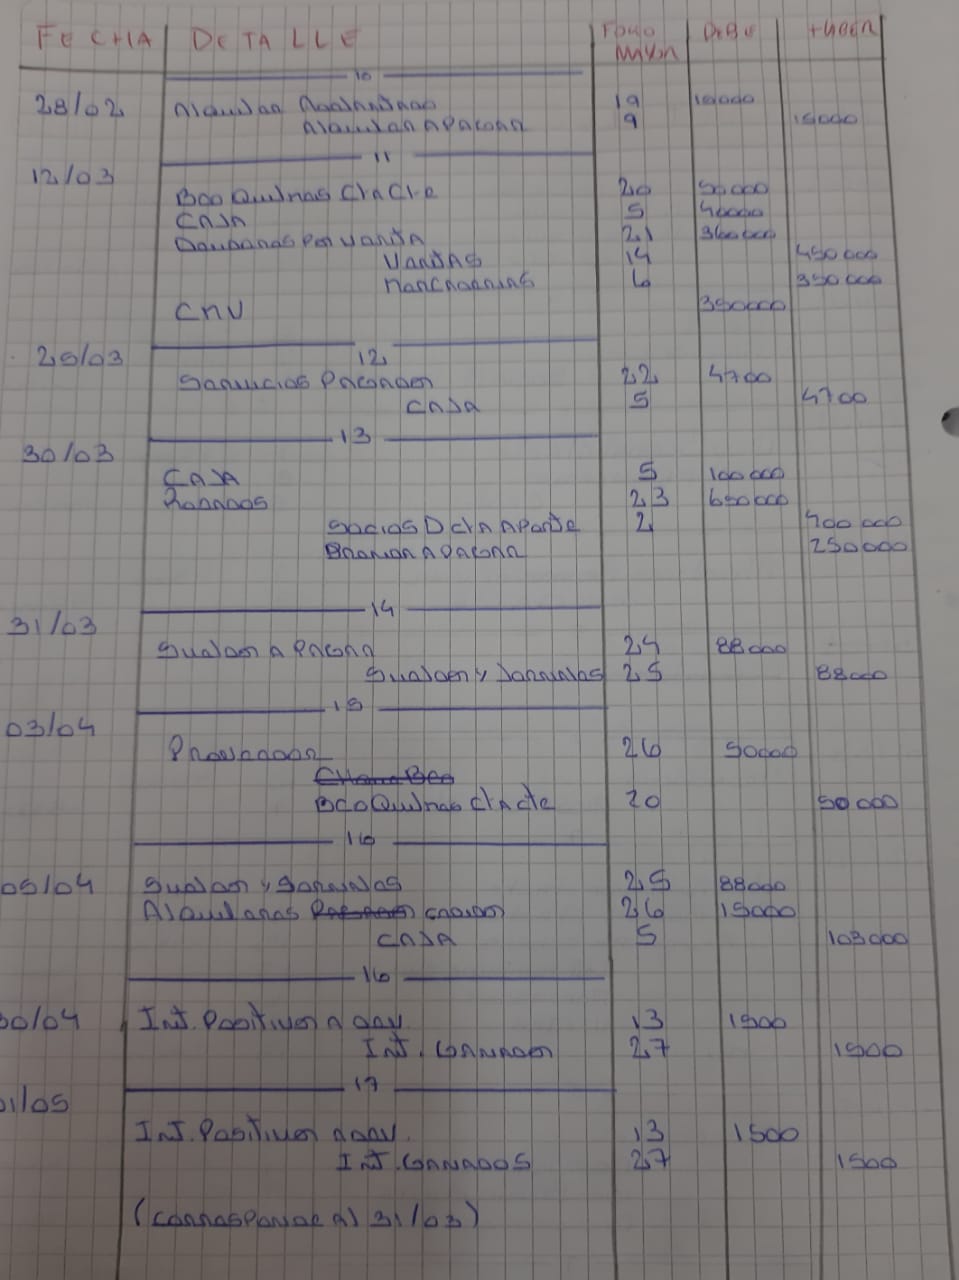 FECHA DETALLE FOLIO MAYOR DEBE HABER
10
28/02 Alquiler Adelantado 19 10000
Alquiler a Pagar 9 15000
11
12/03
Bco Quilmes Cta Cte 20 50000
CAJA 5 40000
Deudores Por Venta 21 360000
Ventas 14 450000
Mercaderias 6 350000
CMV 350000
25/03 12
Servicios Pagados 22 4700
CAJA 5 4700
13
30/03
CAJA 5 100000
Rodados 23 650000
Socios D Cta Aporte 2 400000
a Pagar 250000
14
31/03
Sueldo a Pagar 24 88000
Sueldos y Jornales 25 88000
15
03/04
Proveedor 26 50000
Bco Quilmes Cta cte 20 50000
16
05/04 Sueldos y Jornales 25 88000
Alquileres 26 15000
CAJA 5 103000
16
30/04 Int. Positivos a dev. 13 1500
Int. Ganados 27 1500
17
01/05
Int. Positivos a dev. 13 1500
Int. GANADOS 27 1500
(corresponde al 31/03)